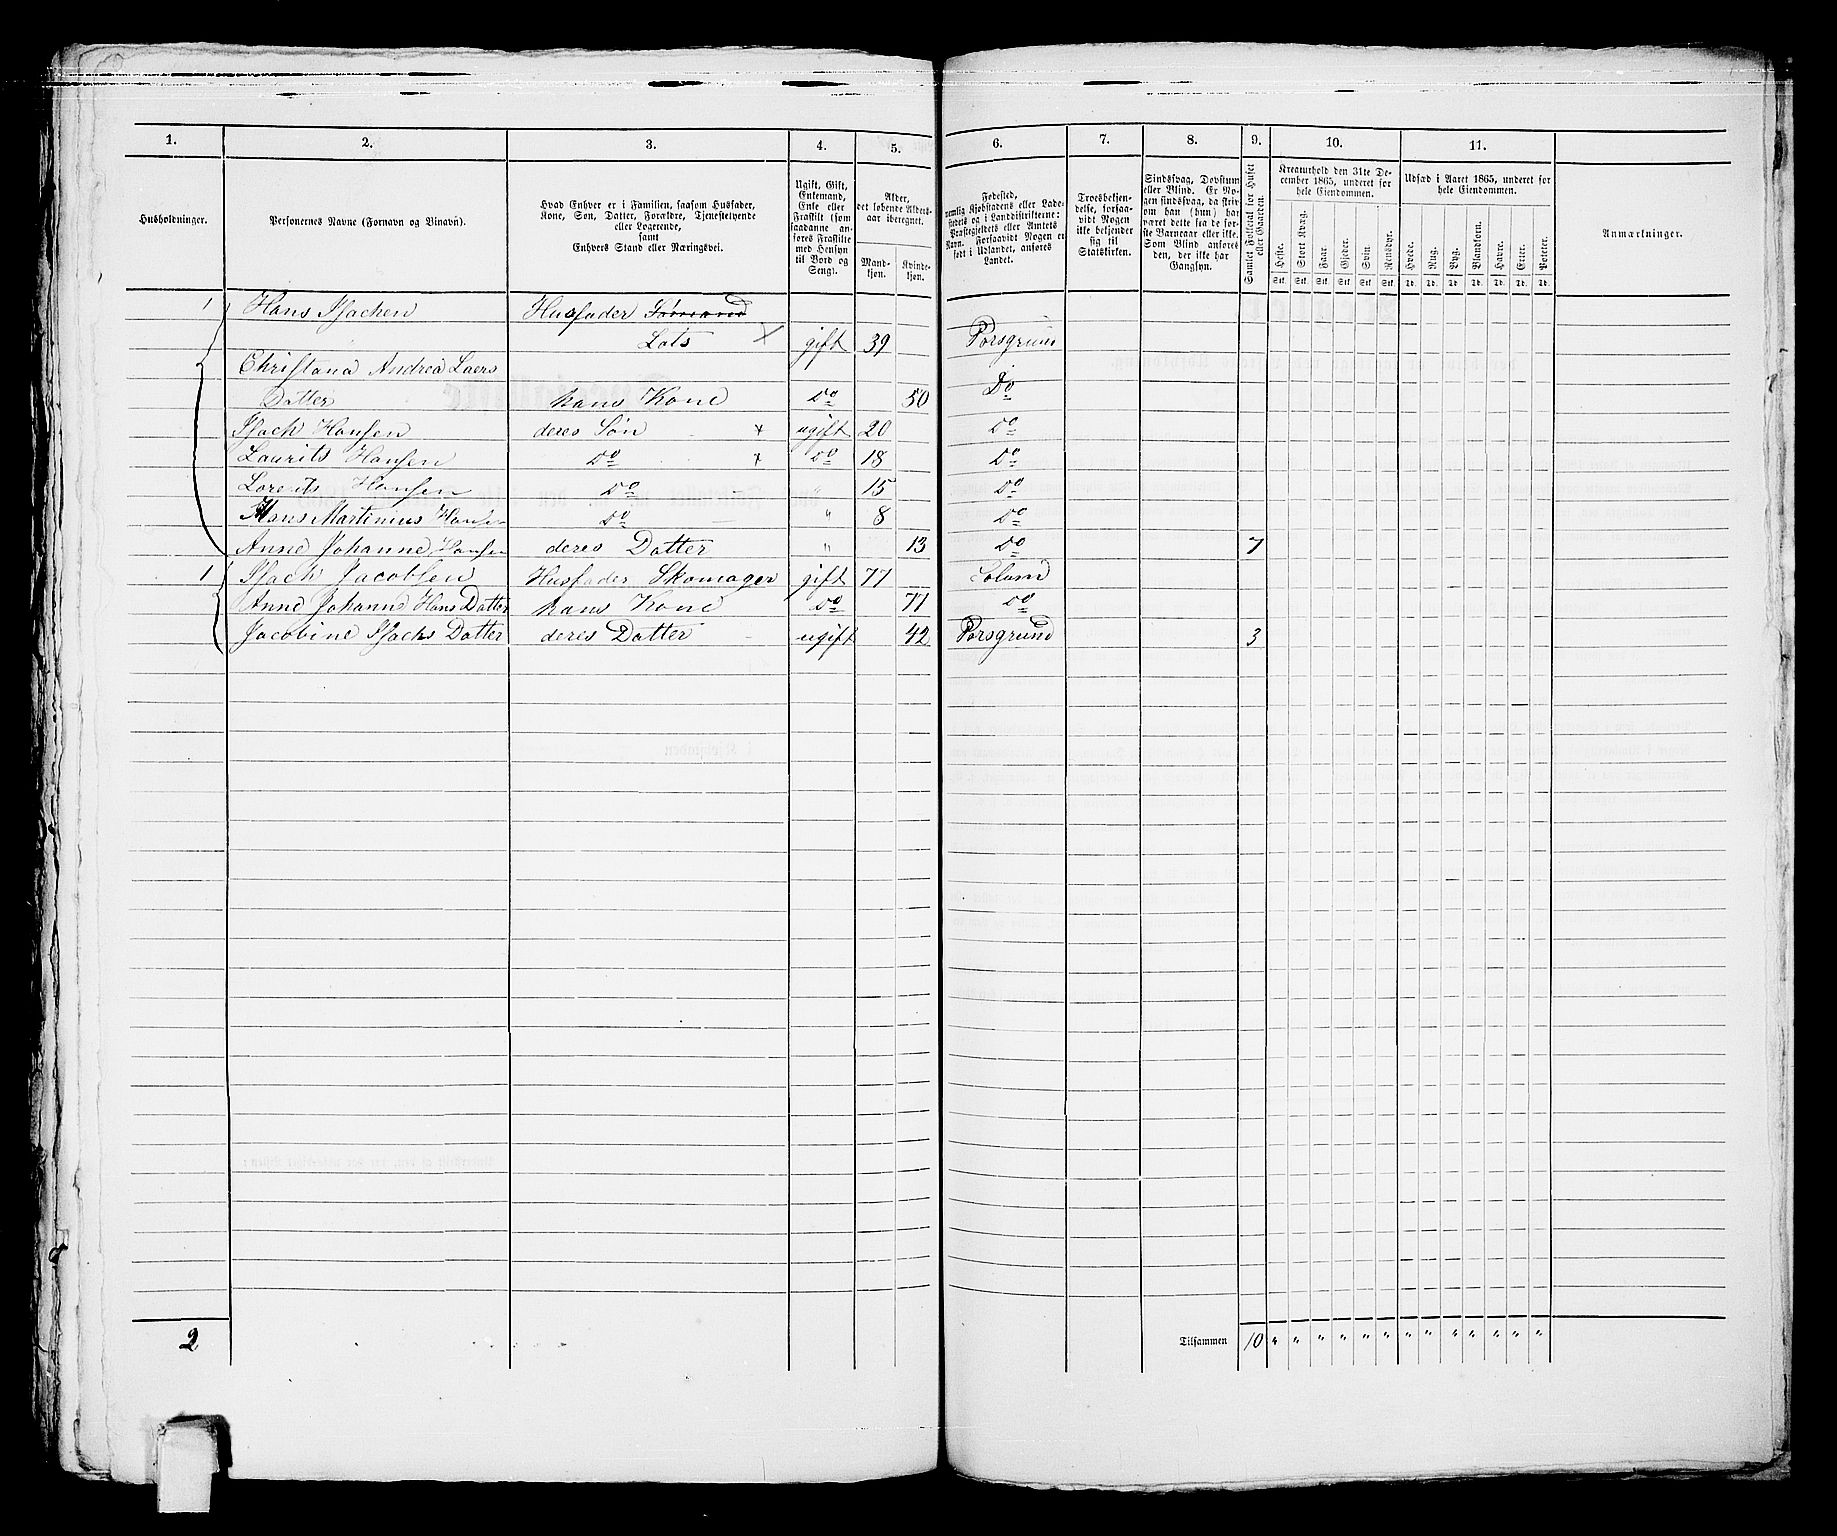 1. 2. 3. 4. 5. 6. 7. 8. 9. 10. 11.
Husholdninger.
Personernes Navne (Fornavn og Binavn).
Hvad Enhver er i Familien, saasom Husfader,
Kone, Søn, Datter, Forældre, Tjenestetyende
eller Logerende,
samt
Enhvers Stand eller Næringsvei.
Ugift, Gift,
Enkemand,
Enke eller
Fraskilt (som
saadanne an-
føres Fraskilte
med Hensyn
til Bord og
Seng).
Alder,
det løbende Alders-
aar iberegnet.
Mand-
kjøn.
Kvinde-
kjøn.
Fødested,
nemlig Kjøbstadens eller Lade-
stedets og i Landdistrikterne:
Præstegjeldets eller Amtets
Navn. Forsaavidt Nogen er
født i Udlandet, anføres
Landet.
Troesbekjen-
delse, forsaa-
vidt Nogen
ikke bekjender
sig til
Statskirken.
Sindssvag, Døvstum
eller Blind. Er No-
gen sindssvag, da skriv
om han (hun) har
været dette fra de før-
ste Barneaar eller ikke.
Som Blind anføres
den, der ikke har
Gangsyn.
Samlet Folketal for Huset
eller Gaarden.
Kreaturhold den 31te De-
cember 1865, underet for
hele Eiendommen.
Heste. Stort Kvæg. Faar. Gjeder. Svin. Rensdyr.
Stk. Stk. Stk. Stk. Stk. Stk.
Udsæd i Aaret 1865, underet for
hele Eiendommen.
Hvede. Rug. Byg. Blandkorn. Havre. Erter. Poteter.
Td. Td. Td. Td. Td. Td. Td.
Anmærkninger.
1 Hans Isachen Husfader
Lots gift 39 Porsgrund
Christana Andrea Laers
Datter hans Kone Do 50 Do
Isach Hansen deres Søn ugift 20 Do
Laurits Hansen Do Do 18 Do
Lorents Hansen Do " 15 Do
Hans Martinius Hansen Do " 8 Do
Anne Johanne Hansen deres Datter " 13 Do 7
1 Isach Jacobsen Husfader Skomager gift 77 Solum
Anne Johanne Hans Datter hans Kone Do 77 Do
Jacobine Isachs Datter deres Datter ugift 42 Porsgrund 3
2 Tilsammen 10 " " " " " " " " " " " " "